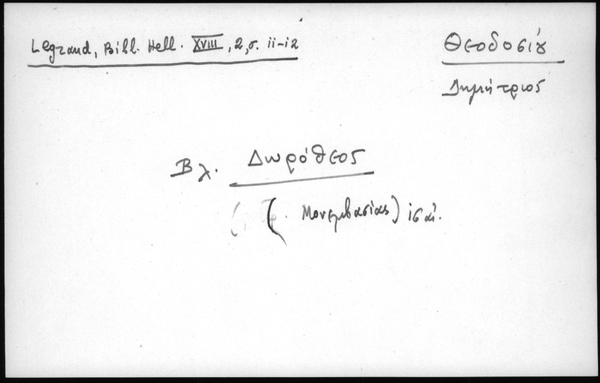 Legrand, Bibl. Hell. XVIII, 2, σ. 11-12
Θεοδοσίου
Δημήτριος
Βλ. Δωρόθεος
(Μονεμβασίας)